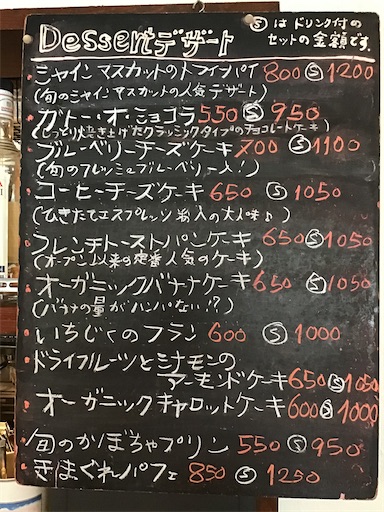 Dessert デザート
Ⓢは ドリンク付の
セットの金額です。
シャインマスカットのトライパイ 800 Ⓢ 1200
(旬のシャインマスカットの人気デザート)
ガトー・オ・ショコラ 550 Ⓢ 950
(しっとり焼き上げたクラシックタイプのチョコレートケーキ)
ブルーベリーチーズケーキ 700 Ⓢ 1100
(旬のフレッシュブルーベリー入!)
コーヒーチーズケーキ 650 Ⓢ 1050
(ひきたてエスプレッソ粉入の大人味♪)
フレンチトーストパンケーキ 650 Ⓢ 1050
(オープン以来の定番人気のケーキ)
オーガニックバナナケーキ 650 Ⓢ 1050
(バナナの量がハンパない!?)
いちじくのフラン 600 Ⓢ 1000
ドライフルーツとシナモンの
アーモンドケーキ 650 Ⓢ 1050
オーガニックキャロットケーキ 600 Ⓢ 1000
旬のかぼちゃプリン 550 Ⓢ 950
きまぐれパフェ 850 Ⓢ 1250